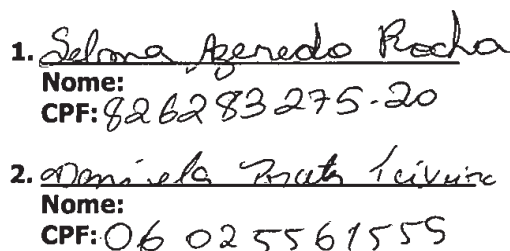 1. Selma Azeredo Rocha
Nome:
CPF: 826283275-20
2. Daniela Teixeira
Nome:
CPF: 06 025561555